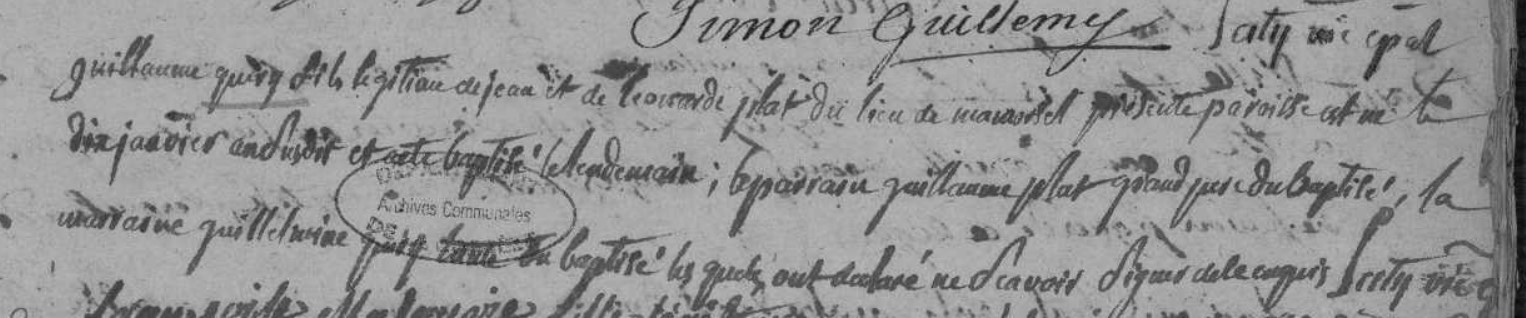 Simon Guillemy
guillaume query fils legitime de jean et de leonarde plat du lieu de presente paroisse est né le
dix janvier an susdit et a ete baptisé le lendemain ; le parrain guillaume plat grand pere du baptisé, la
marraine guillelmine query tante du baptisé les quels ont declaré ne scavoir signer de ce enquis
Archives Communales